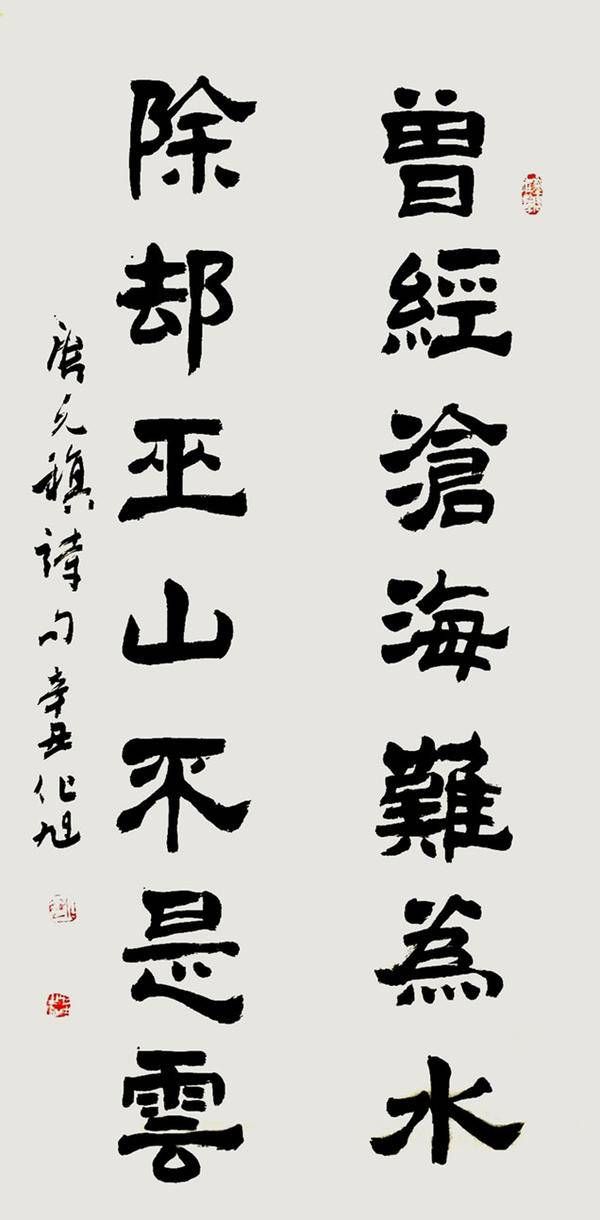 曾經滄海難為水
除却巫山不是雲
唐元稹詩句辛丑化旭